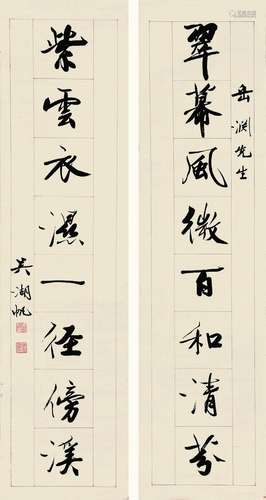 岳渊先生
翠幕風微百和清芬
紫雲衣濕一徑傍溪
吳湖帆